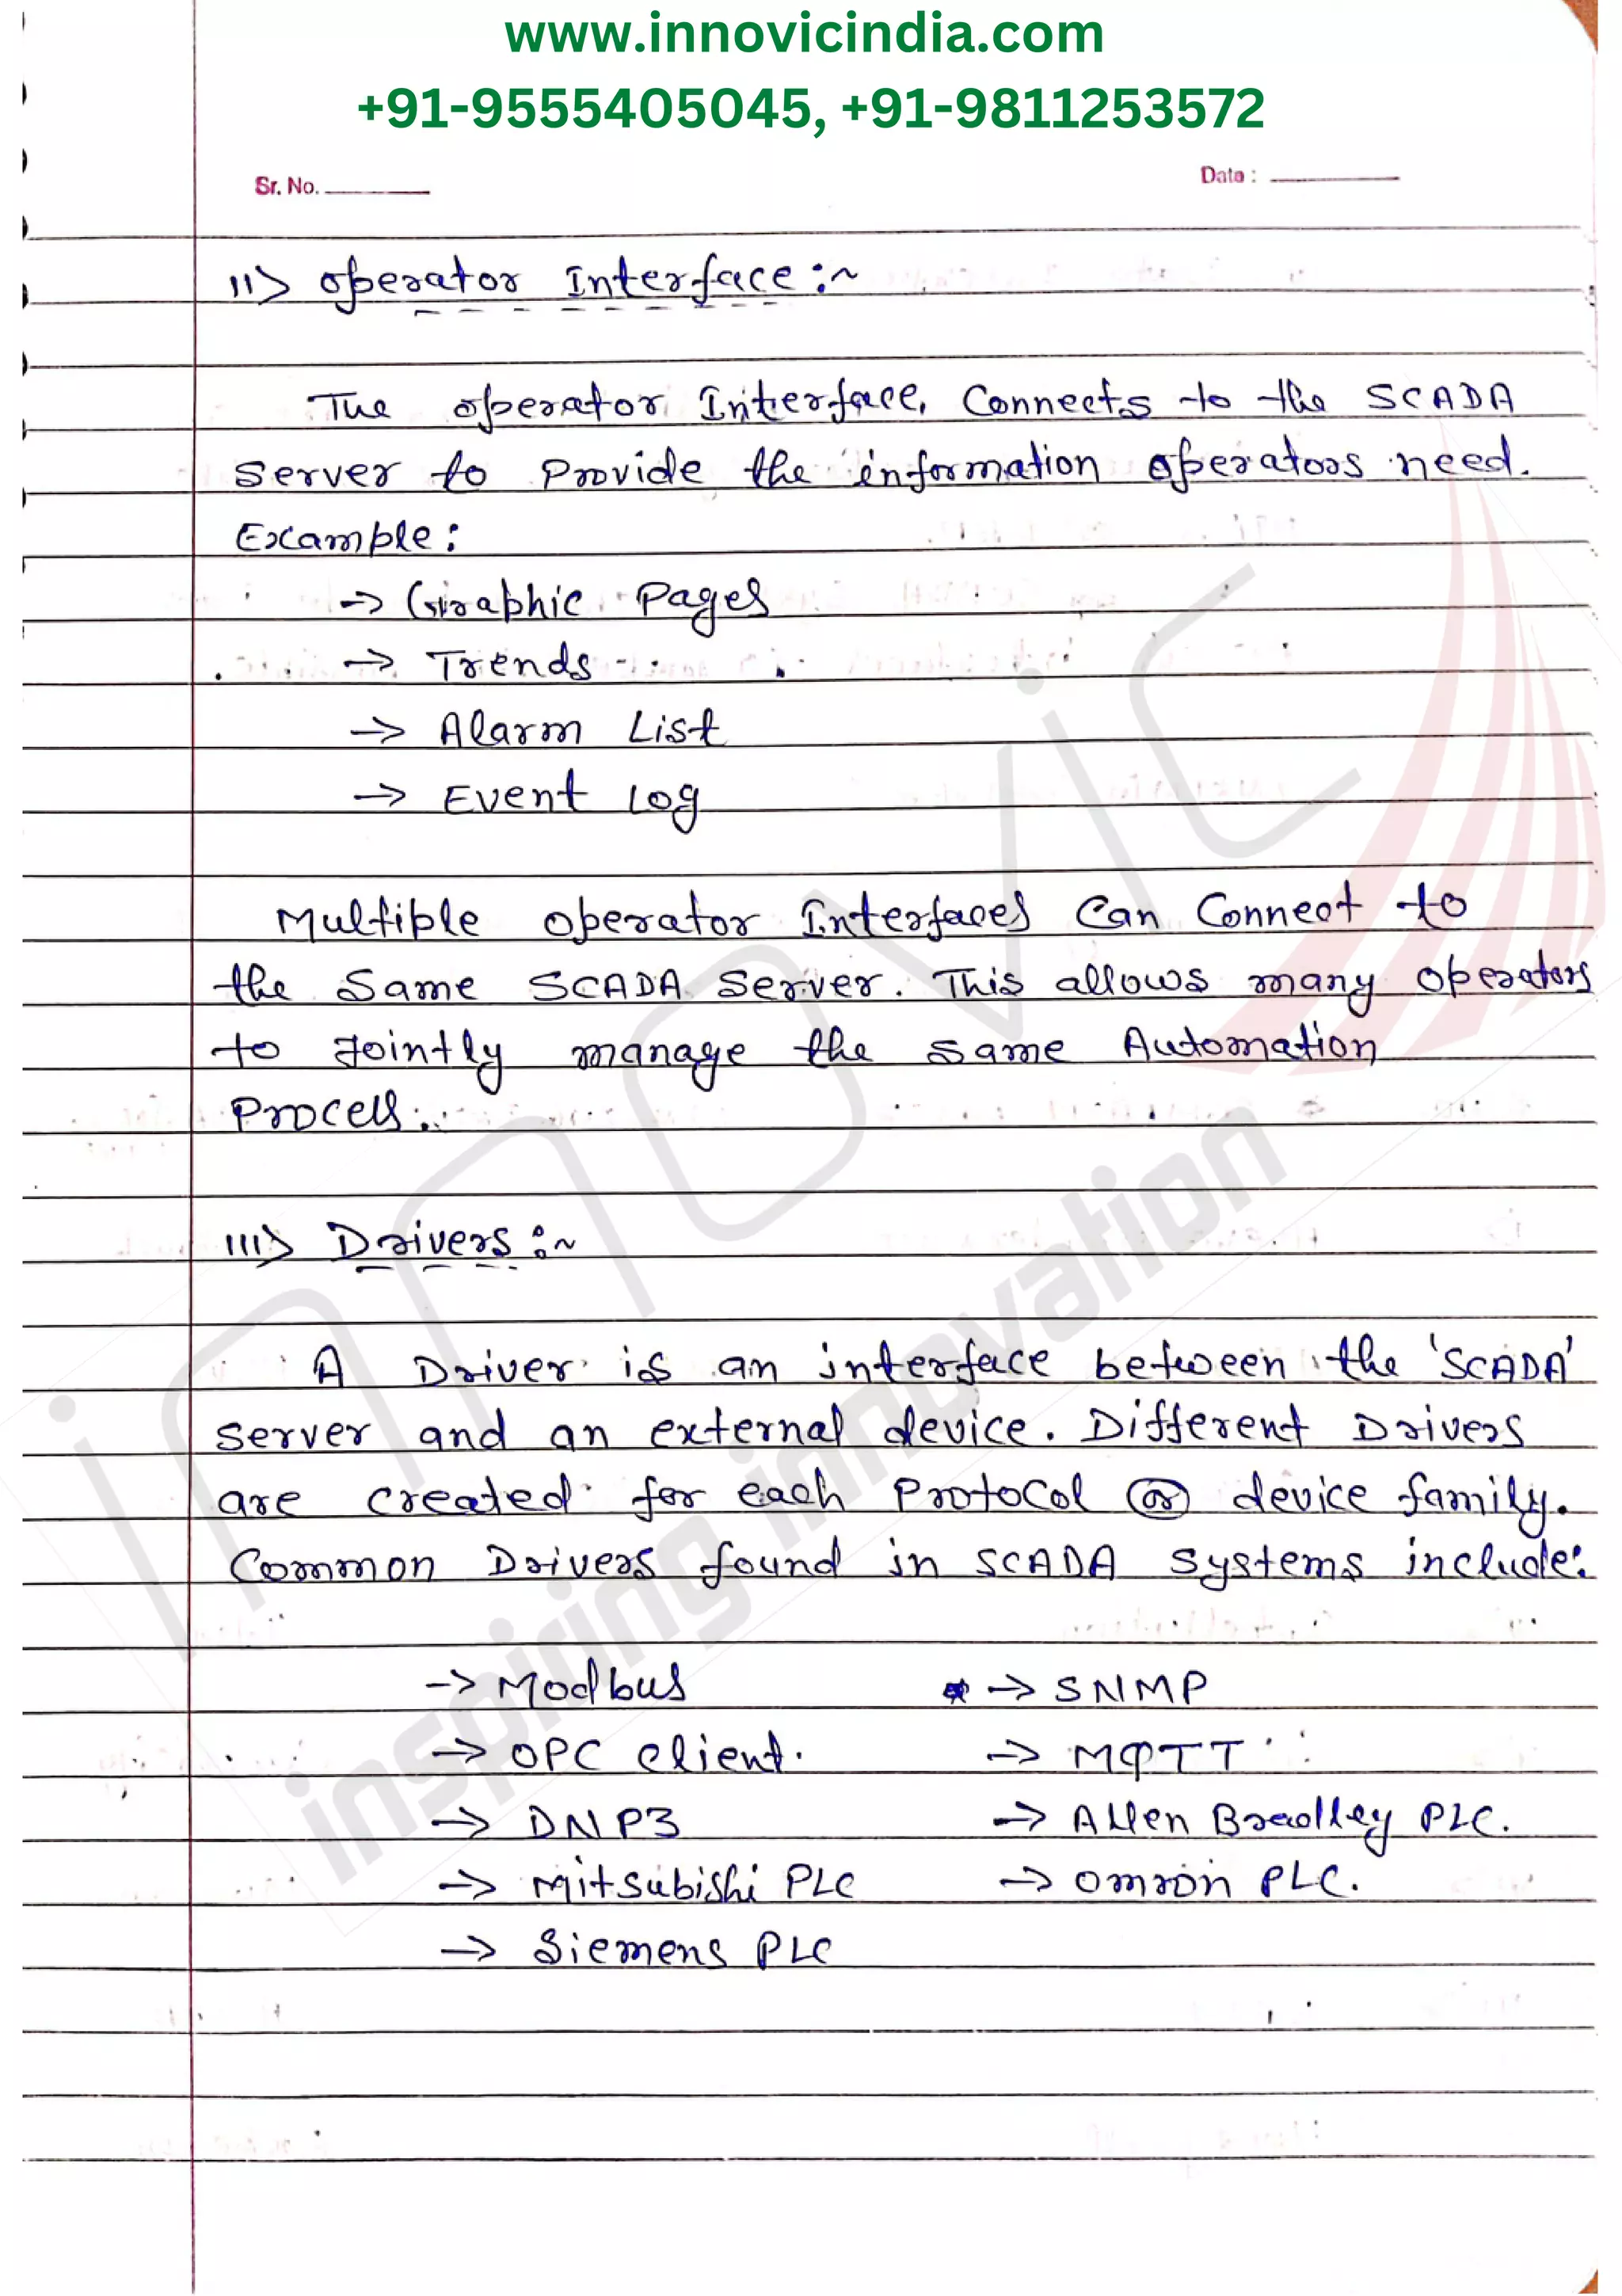 www.innovicindia.com
+91-9555405045, +91-9811253572
Sr. No.
Date :
II> operator Interface :~
The operator Interface, Connects to the SCADA
Server to Provide the information operators need.
Example :
-> Graphic Pages
-> Trends
-> Alarm List
-> Event log
Multiple operator Interfaces Can Connect to
the Same SCADA Server. This allows many operators
to Jointly manage the same Automation
Process.
III> Drivers :~
A Driver is an interface between the 'SCADA'
server and an external device. Different Drivers
are created for each Protocol or device family.
Common Drivers found in SCADA Systems include:
-> Modbus
-> OPC Client.
-> DNP3
-> Mitsubishi PLC
-> Siemens PLC
-> SNMP
-> MQTT
-> Allen Bradley PLC.
-> Omron PLC.
innovic
inspiring innovation